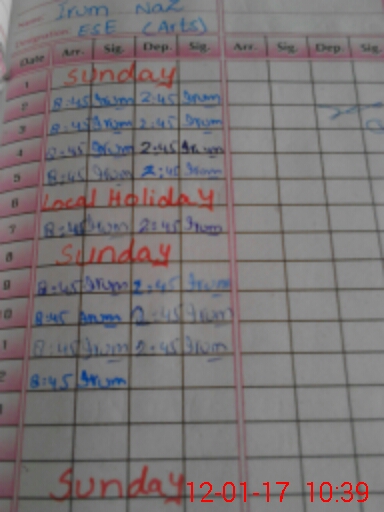 Name: Irum Naz
Designation: ESE (Arts)
Date Arr. Sig. Dep. Sig. Arr. Sig. Dep. Sig.
1 Sunday
2 8:45 Irum 2:45 Irum
3 8:45 Irum 2:45 Irum
4 8:45 Irum 2:45 Irum
5 8:45 Irum 2:45 Irum
6 Local Holiday
7 8:45 Irum 2:45 Irum
8 Sunday
9 8:45 Irum 2:45 Irum
0 8:45 Irum 2:45 Irum
1 8:45 Irum 2:45 Irum
2 8:45 Irum
Sunday
12-01-17 10:39